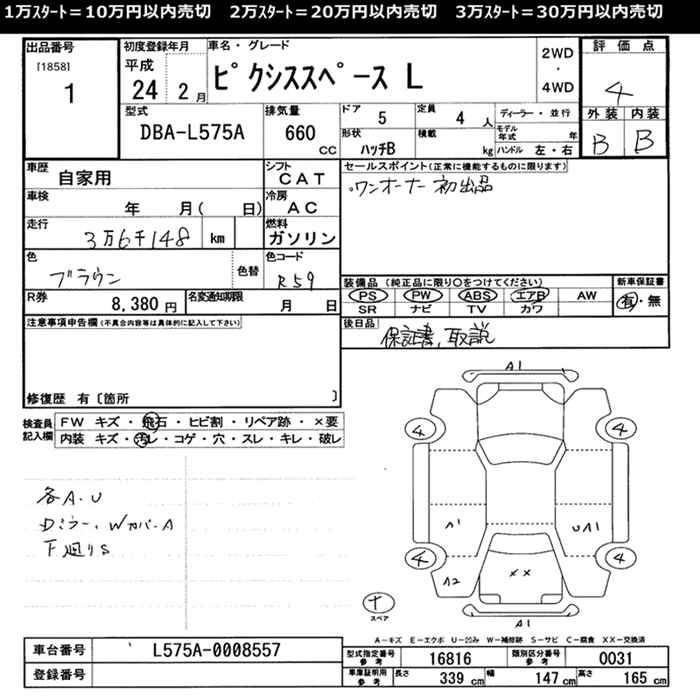 1万ｽﾀｰﾄ＝10万円以内売切　2万ｽﾀｰﾄ＝20万円以内売切　3万ｽﾀｰﾄ＝30万円以内売切
出品番号 [1858] 1
初度登録年月 平成 24 年 2月
車名・グレード ピクシススペース L
2WD・4WD
評価点 4
外装 B 内装 B
型式 DBA-L575A
排気量 660 CC
ドア 5
形状 ハッチB
定員 4 人
積載 kg
ディーラー・並行
モデル年式 年
ハンドル 左・右
車歴 自家用
シフト CAT
車検 年 月( 日)
冷房 AC
走行 3万6千148 km
燃料 ガソリン
色 ブラウン 色替
色コード R59
R券 8,380 円
名変通知期限 月 日
セールスポイント(正常に機能するものに限ります)
・ワンオーナー 初出品
装備品 (純正品に限り○をつけてください)
PS PW ABS エアB AW
SR ナビ TV カワ
新車保証書 有・無
後日品 保証書、取説
注意事項申告欄(不具合内容等は具体的に記入して下さい)
修復歴 有〔箇所 〕
検査員記入欄
FW キズ・飛石・ヒビ割・リペア跡・×要
内装 キズ・汚レ・コゲ・穴・スレ・キレ・破レ
各A.U
Dミラー、WカバーA
下廻りS
A1
4 4
A1 UA1
4 4
A2 ××
A1
スペア
A－キズ E－エクボ U－凹み W－補修跡 S－サビ C－腐食 XX－交換済
車台番号 L575A-0008557
登録番号
型式指定番号 参考 16816
類別区分番号 参考 0031
車庫証明用 参考 長さ 339 cm 幅 147 cm 高さ 165 cm